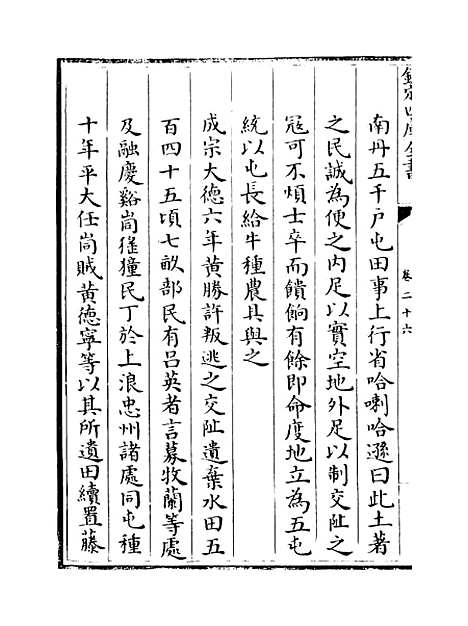 欽定四庫全書
卷二十六
南丹五千戶屯田事上行省哈喇哈遜曰此土著
之民誠為便之内足以實空地外足以制交阯之
冦可不煩士卒而饋餉有餘即命度地立為五屯
統以屯長給牛種農具與之
成宗大德六年黄勝許叛逃之交阯遺棄水田五
百四十五頃七畝部民有吕英者言募牧蘭等處
及融慶谿峝猺獞民丁於上浪忠州諸處同屯種
十年平大任峝賊黄德寧等以其所遺田續置藤